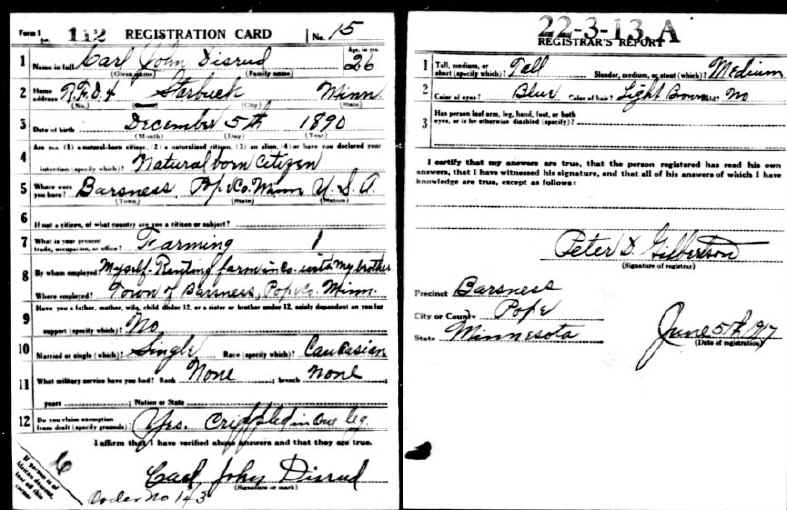 Form 1 112 REGISTRATION CARD No. 15
1 Name in full Carl John Disrud Age, in yrs. 26
(Given name) (Family name)
2 Home address R.F.D. 4 Starbuck Minn
(No.) (Street) (City) (State)
3 Date of birth December 5th 1890
(Month) (Day) (Year)
4 Are you (1) a natural-born citizen, (2) a naturalized citizen, (3) an alien, (4) or have you declared your
intention (specify which)? Natural born Citizen
5 Where were you born? Barsness Pop. Co. Minn U. S. A
(Town) (State) (Nation)
6 If not a citizen, of what country are you a citizen or subject?
7 What is your present trade, occupation, or office? Farming
8 By whom employed? Myself - Renting farm in Co. with my brother
Where employed? Town of Barsness, Pop. Co. Minn.
9 Have you a father, mother, wife, child under 12, or a sister or brother under 12, solely dependent on you for
support (specify which)? No
10 Married or single (which)? Single Race (specify which)? Caucasian
11 What military service have you had? Rank None ; branch None
years ; Nation or State
12 Do you claim exemption from draft (specify grounds)? Yes. Crippled in one leg.
I affirm that I have verified above answers and that they are true.
If person is of African descent, tear off this corner
Carl John Disrud
(Signature or mark)
Order No 143
22-3-13 A
REGISTRAR'S REPORT
1 Tall, medium, or short (specify which)? Tall Slender, medium, or stout (which)? Medium
2 Color of eyes? Blue Color of hair? Light Brown Bald? No
3 Has person lost arm, leg, hand, foot, or both eyes, or is he otherwise disabled (specify)?
I certify that my answers are true, that the person registered has read his own
answers, that I have witnessed his signature, and that all of his answers of which I have
knowledge are true, except as follows:
Peter D. Gilbertson
(Signature of registrar)
Precinct Barsness
City or County Pope
State Minnesota
June 5th 1917
(Date of registration)